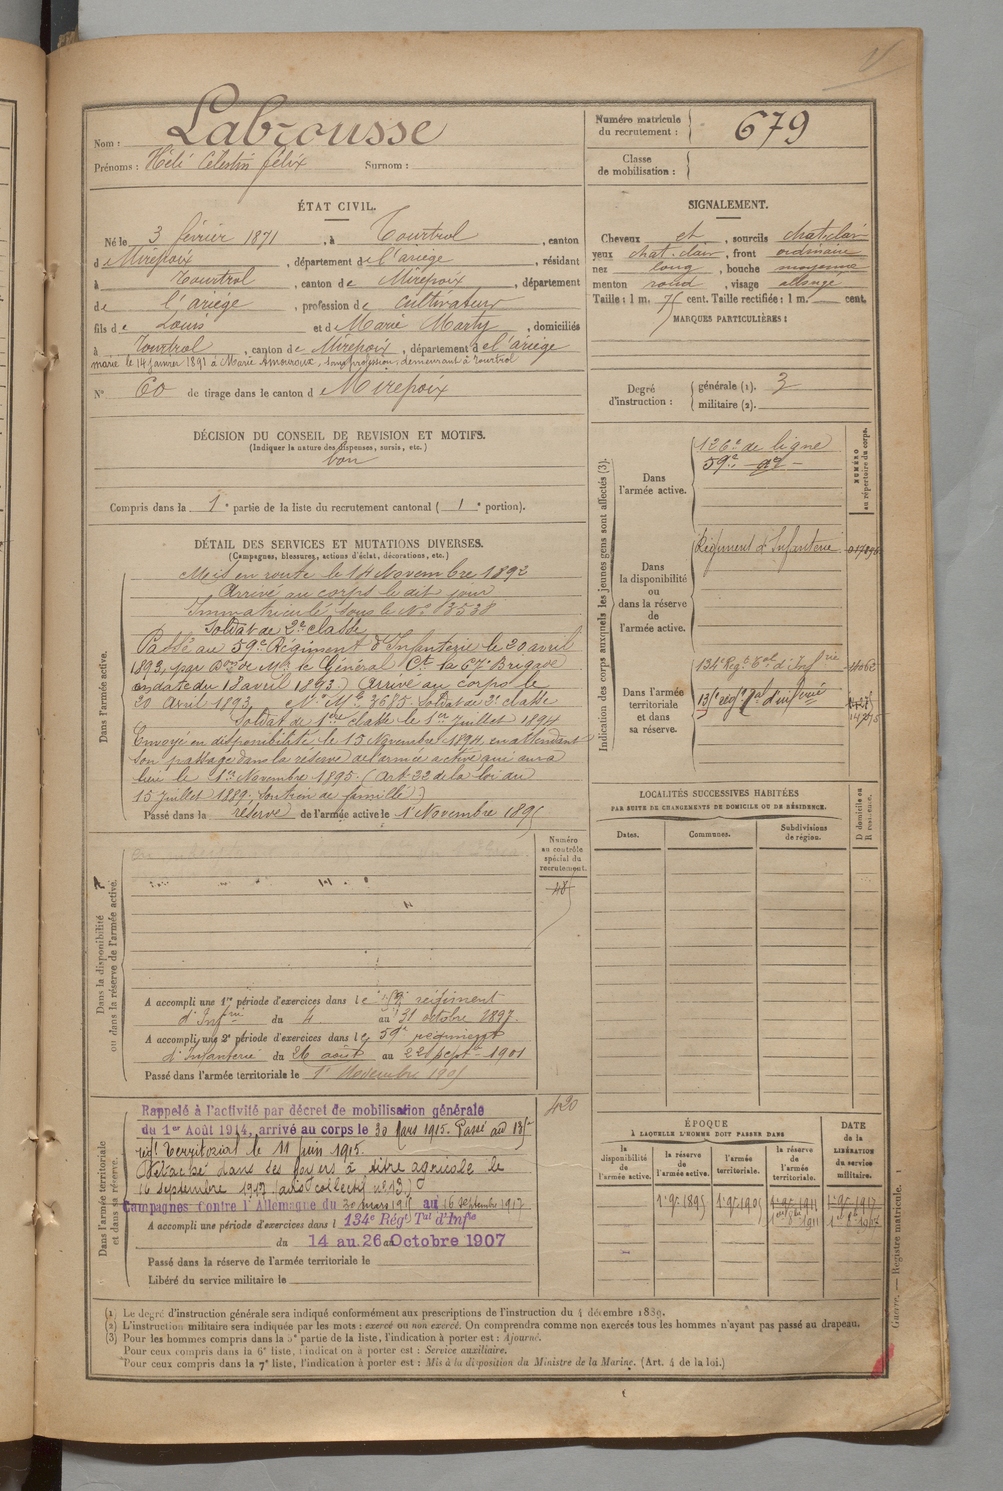 Nom : Labrousse
Prénoms : Hélé Célestin félix Surnom :
Numéro matricule du recrutement : 679
Classe de mobilisation :
ÉTAT CIVIL.
Né le 3 février 1871, à Tourtrol, canton
d Mirepoix, département de l'ariège, résidant
à Tourtrol, canton de Mirepoix, département
de l'ariège, profession de cultivateur
fils de Louis et de Marie Marty, domiciliés
à Tourtrol, canton de Mirepoix, département de l'ariège
marié le 14 janvier 1891 à Marie Amouroux, sans profession, demeurant à Tourtrol
N° 60 de tirage dans le canton d Mirepoix
SIGNALEMENT.
Cheveux et, sourcils chat. clair
yeux chat. clair, front ordinaire
nez long, bouche moyenne
menton rond, visage allongé
Taille : 1 m. 75 cent. Taille rectifiée : 1 m. cent.
MARQUES PARTICULIÈRES :
Degré d'instruction : générale (1). 3
militaire (2).
DÉCISION DU CONSEIL DE REVISION ET MOTIFS.
(Indiquer la nature des dispenses, sursis, etc.)
bon
Compris dans la 1e partie de la liste du recrutement cantonal ( 1e portion).
DÉTAIL DES SERVICES ET MUTATIONS DIVERSES.
(Campagnes, blessures, actions d'éclat, décorations, etc.)
Dans l'armée active.
Mis en route le 14 Novembre 1892
Arrivé au corps le dit jour
Immatriculé sous le N° 3538
Soldat de 2e classe
Passé au 59e Régiment d'Infanterie le 20 avril
1893, par Don de Mr le Général Ct la 67e Brigade
en date du 18 avril 1893.) Arrivé au corps le
20 Avril 1893. N° Mle 3685. Soldat de 2e classe
Soldat de 1ère classe le 1er Juillet 1894
Envoyé en disponibilité le 15 Novembre 1894, en attendant
son passage dans la réserve de l'armée active qui aura
lieu le 1er Novembre 1895. (Art. 22 de la loi du
15 juillet 1889, soutien de famille)
Passé dans la réserve de l'armée active le 1 Novembre 1895
Indication des corps auxquels les jeunes gens sont affectés (3).
NUMÉRO au répertoire du corps.
Dans l'armée active.
126e de ligne
59e
Dans la disponibilité ou dans la réserve de l'armée active.
Régiment d'Infanterie
Dans l'armée territoriale et dans sa réserve.
134e Régt Tal d'Infrie 4062
135e régt tal d'infrie
LOCALITÉS SUCCESSIVES HABITÉES
PAR SUITE DE CHANGEMENTS DE DOMICILE OU DE RÉSIDENCE.
Dates. Communes. Subdivisions de région. D domicile ou R résidence.
Dans la disponibilité ou dans la réserve de l'armée active.
Numéro au contrôle spécial du recrutement.
A accompli une 1re période d'exercices dans le 59e régiment
d'Infrie du 4 au 31 octobre 1897.
A accompli une 2e période d'exercices dans le 59e régiment
d'Infanterie du 26 août au 22 septbre 1901
Passé dans l'armée territoriale le 1er Novembre 1905
420
Dans l'armée territoriale et dans sa réserve.
Rappelé à l'activité par décret de mobilisation générale
du 1er Août 1914, arrivé au corps le 30 Mars 1915. Passé au 135e
régt Territorial le 11 juin 1915.
Détaché dans ses foyers à titre agricole le
16 septembre 1917 (avis collectif n° 13)
Campagnes contre l'Allemagne du 30 mars 1915 au 16 septembre 1917
A accompli une période d'exercices dans l 134e Régt Tal d'Infie
du 14 au 26 au Octobre 1907
Passé dans la réserve de l'armée territoriale le
Libéré du service militaire le
ÉPOQUE
À LAQUELLE L'HOMME DOIT PASSER DANS
la disponibilité de l'armée active.
la réserve de l'armée active.
l'armée territoriale.
la réserve de l'armée territoriale.
DATE de la LIBÉRATION du service militaire.
1er 9bre 1895 1er 9bre 1905 1er 9bre 1911 1er 9bre 1917
(1) Le degré d'instruction générale sera indiqué conformément aux prescriptions de l'instruction du 4 décembre 1889.
(2) L'instruction militaire sera indiquée par les mots : exercé ou non exercé. On comprendra comme non exercés tous les hommes n'ayant pas passé au drapeau.
(3) Pour les hommes compris dans la 5e partie de la liste, l'indication à porter est : Ajourné.
Pour ceux compris dans la 6e liste, l'indication à porter est : Service auxiliaire.
Pour ceux compris dans la 7e liste, l'indication à porter est : Mis à la disposition du Ministre de la Marine. (Art. 4 de la loi.)
Guerre. — Registre matricule. 1